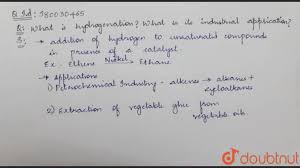 Q Id: 380030465
Q: What is hydrogenation? What is its industrial application?
S: → addition of hydrogen to unsaturated compounds
in presence of a catalyst
Ex - Ethene Nickel → Ethane
→ Applications
1) Petrochemical Industry - alkenes → alkanes +
cycloalkanes
2) Extraction of vegetable ghee from
vegetable oils.
doubtnut